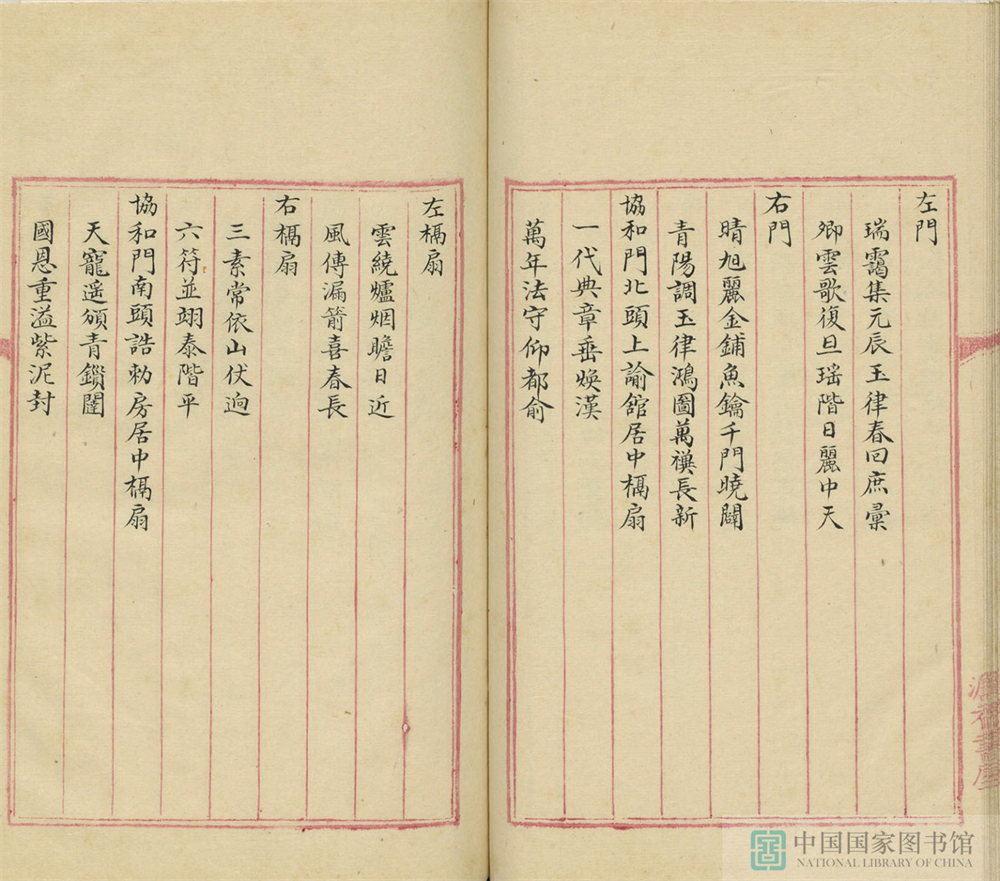 左門
瑞靄集元辰玉律春回庶彚
卿雲歌復旦瑶階日麗中天
右門
晴旭麗金鋪魚鑰千門曉闢
青陽調玉律鴻圖萬禩長新
協和門北頭上諭舘居中槅扇
一代典章垂煥漢
萬年法守仰都俞
左槅扇
雲繞爐烟瞻日近
風傳漏箭喜春長
右槅扇
三素常依山仗逈
六符並翊泰階平
協和門南頭誥勅房居中槅扇
天寵遥頒青鎖闥
國恩重溢紫泥封
中国国家图书馆
NATIONAL LIBRARY OF CHINA